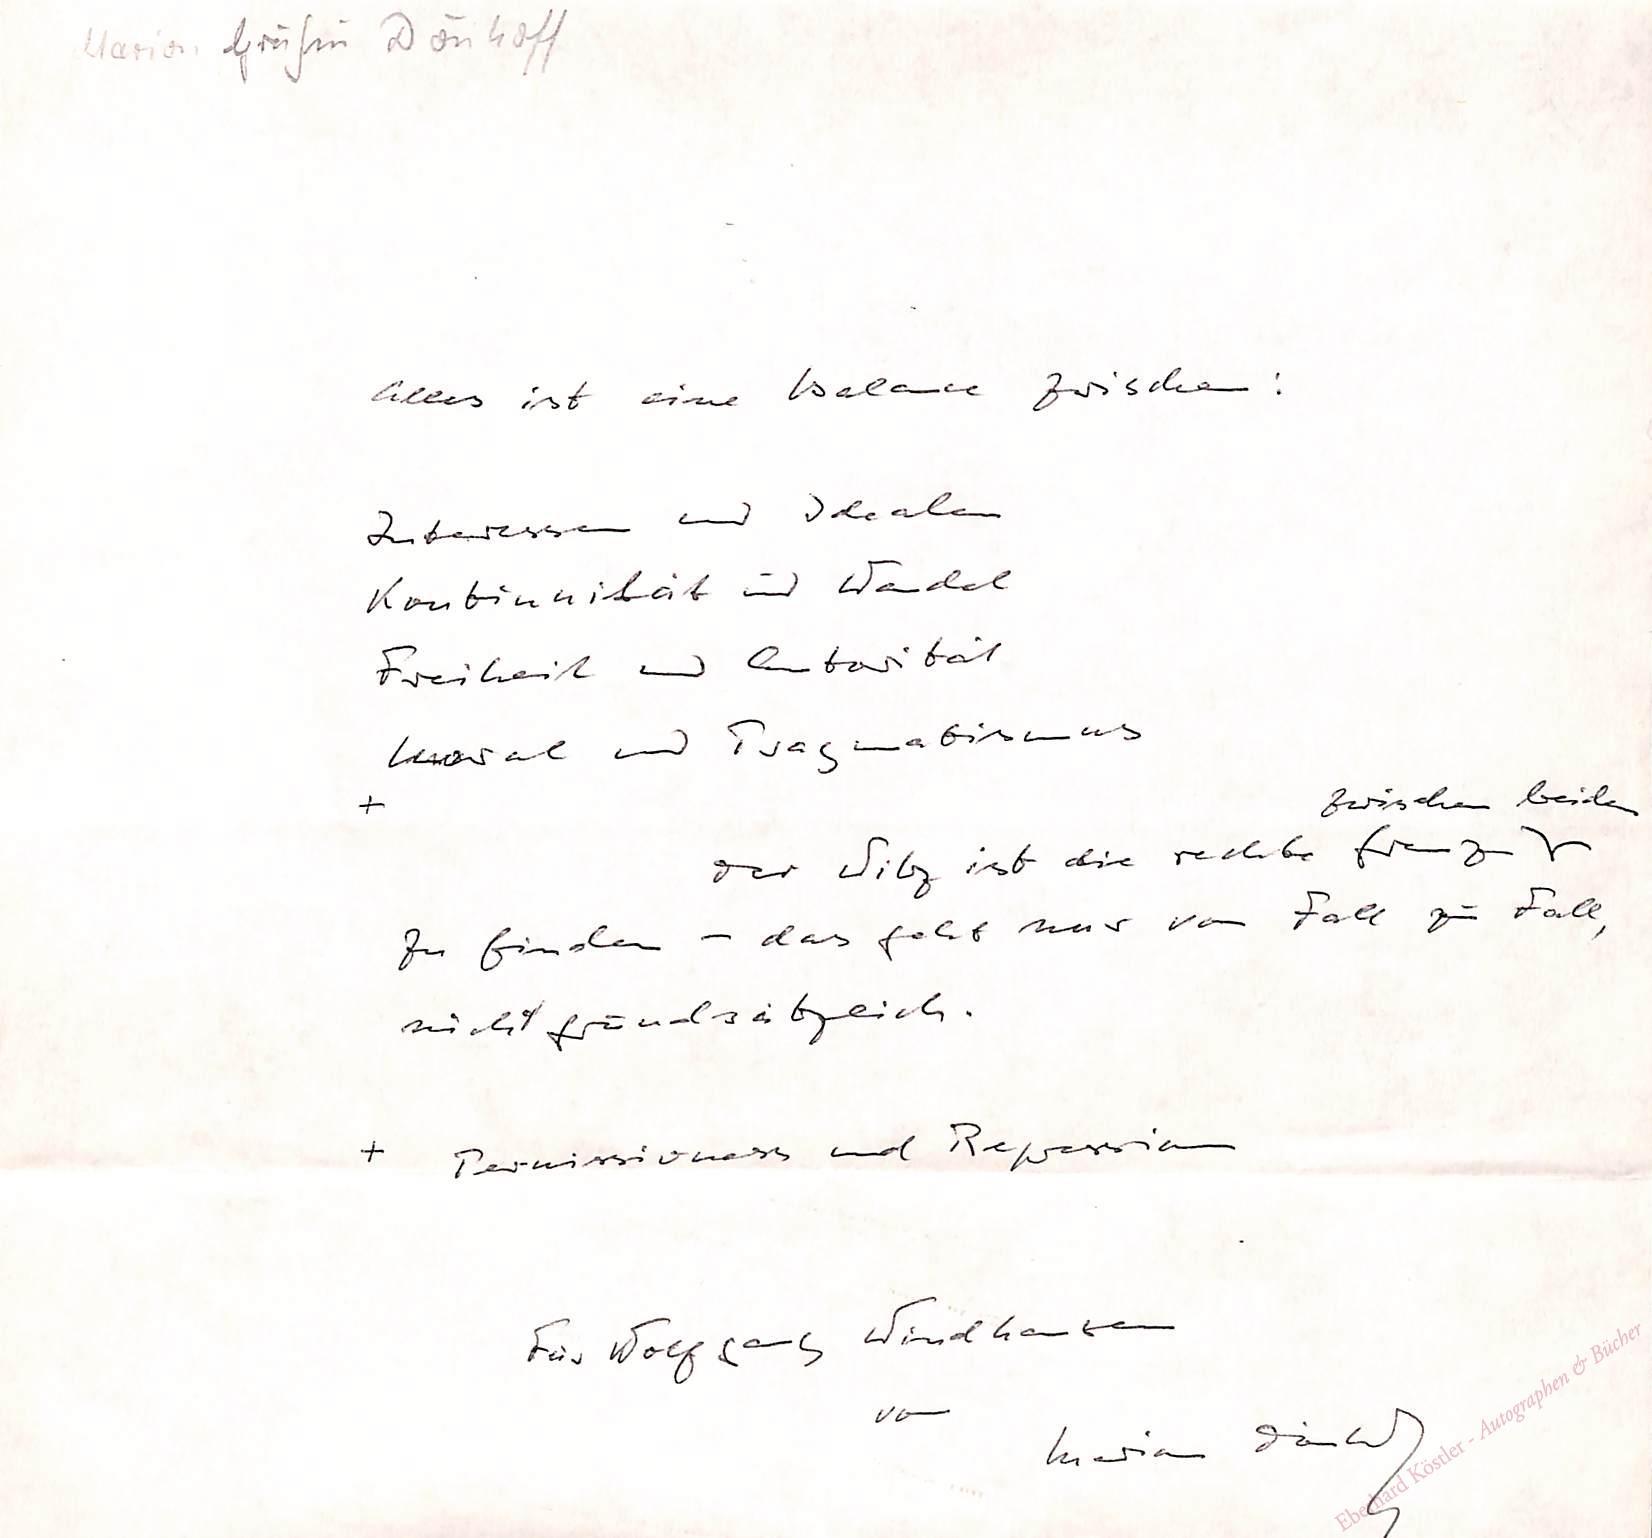 Marion Gräfin Dönhoff
Alles ist eine Balance zwischen:
Interessen und Idealen
Kontinuität und Wandel
Freiheit und Autorität
Moral und Pragmatismus
+
zwischen beiden
Der Witz ist die rechte Grenze
zu finden – das geht nur von Fall zu Fall,
nicht grundsätzlich.
+ Permissiveness und Repression
Für Wolfgang Windhausen
von
Marion Dönhoff
Eberhard Köstler - Autographen & Bücher